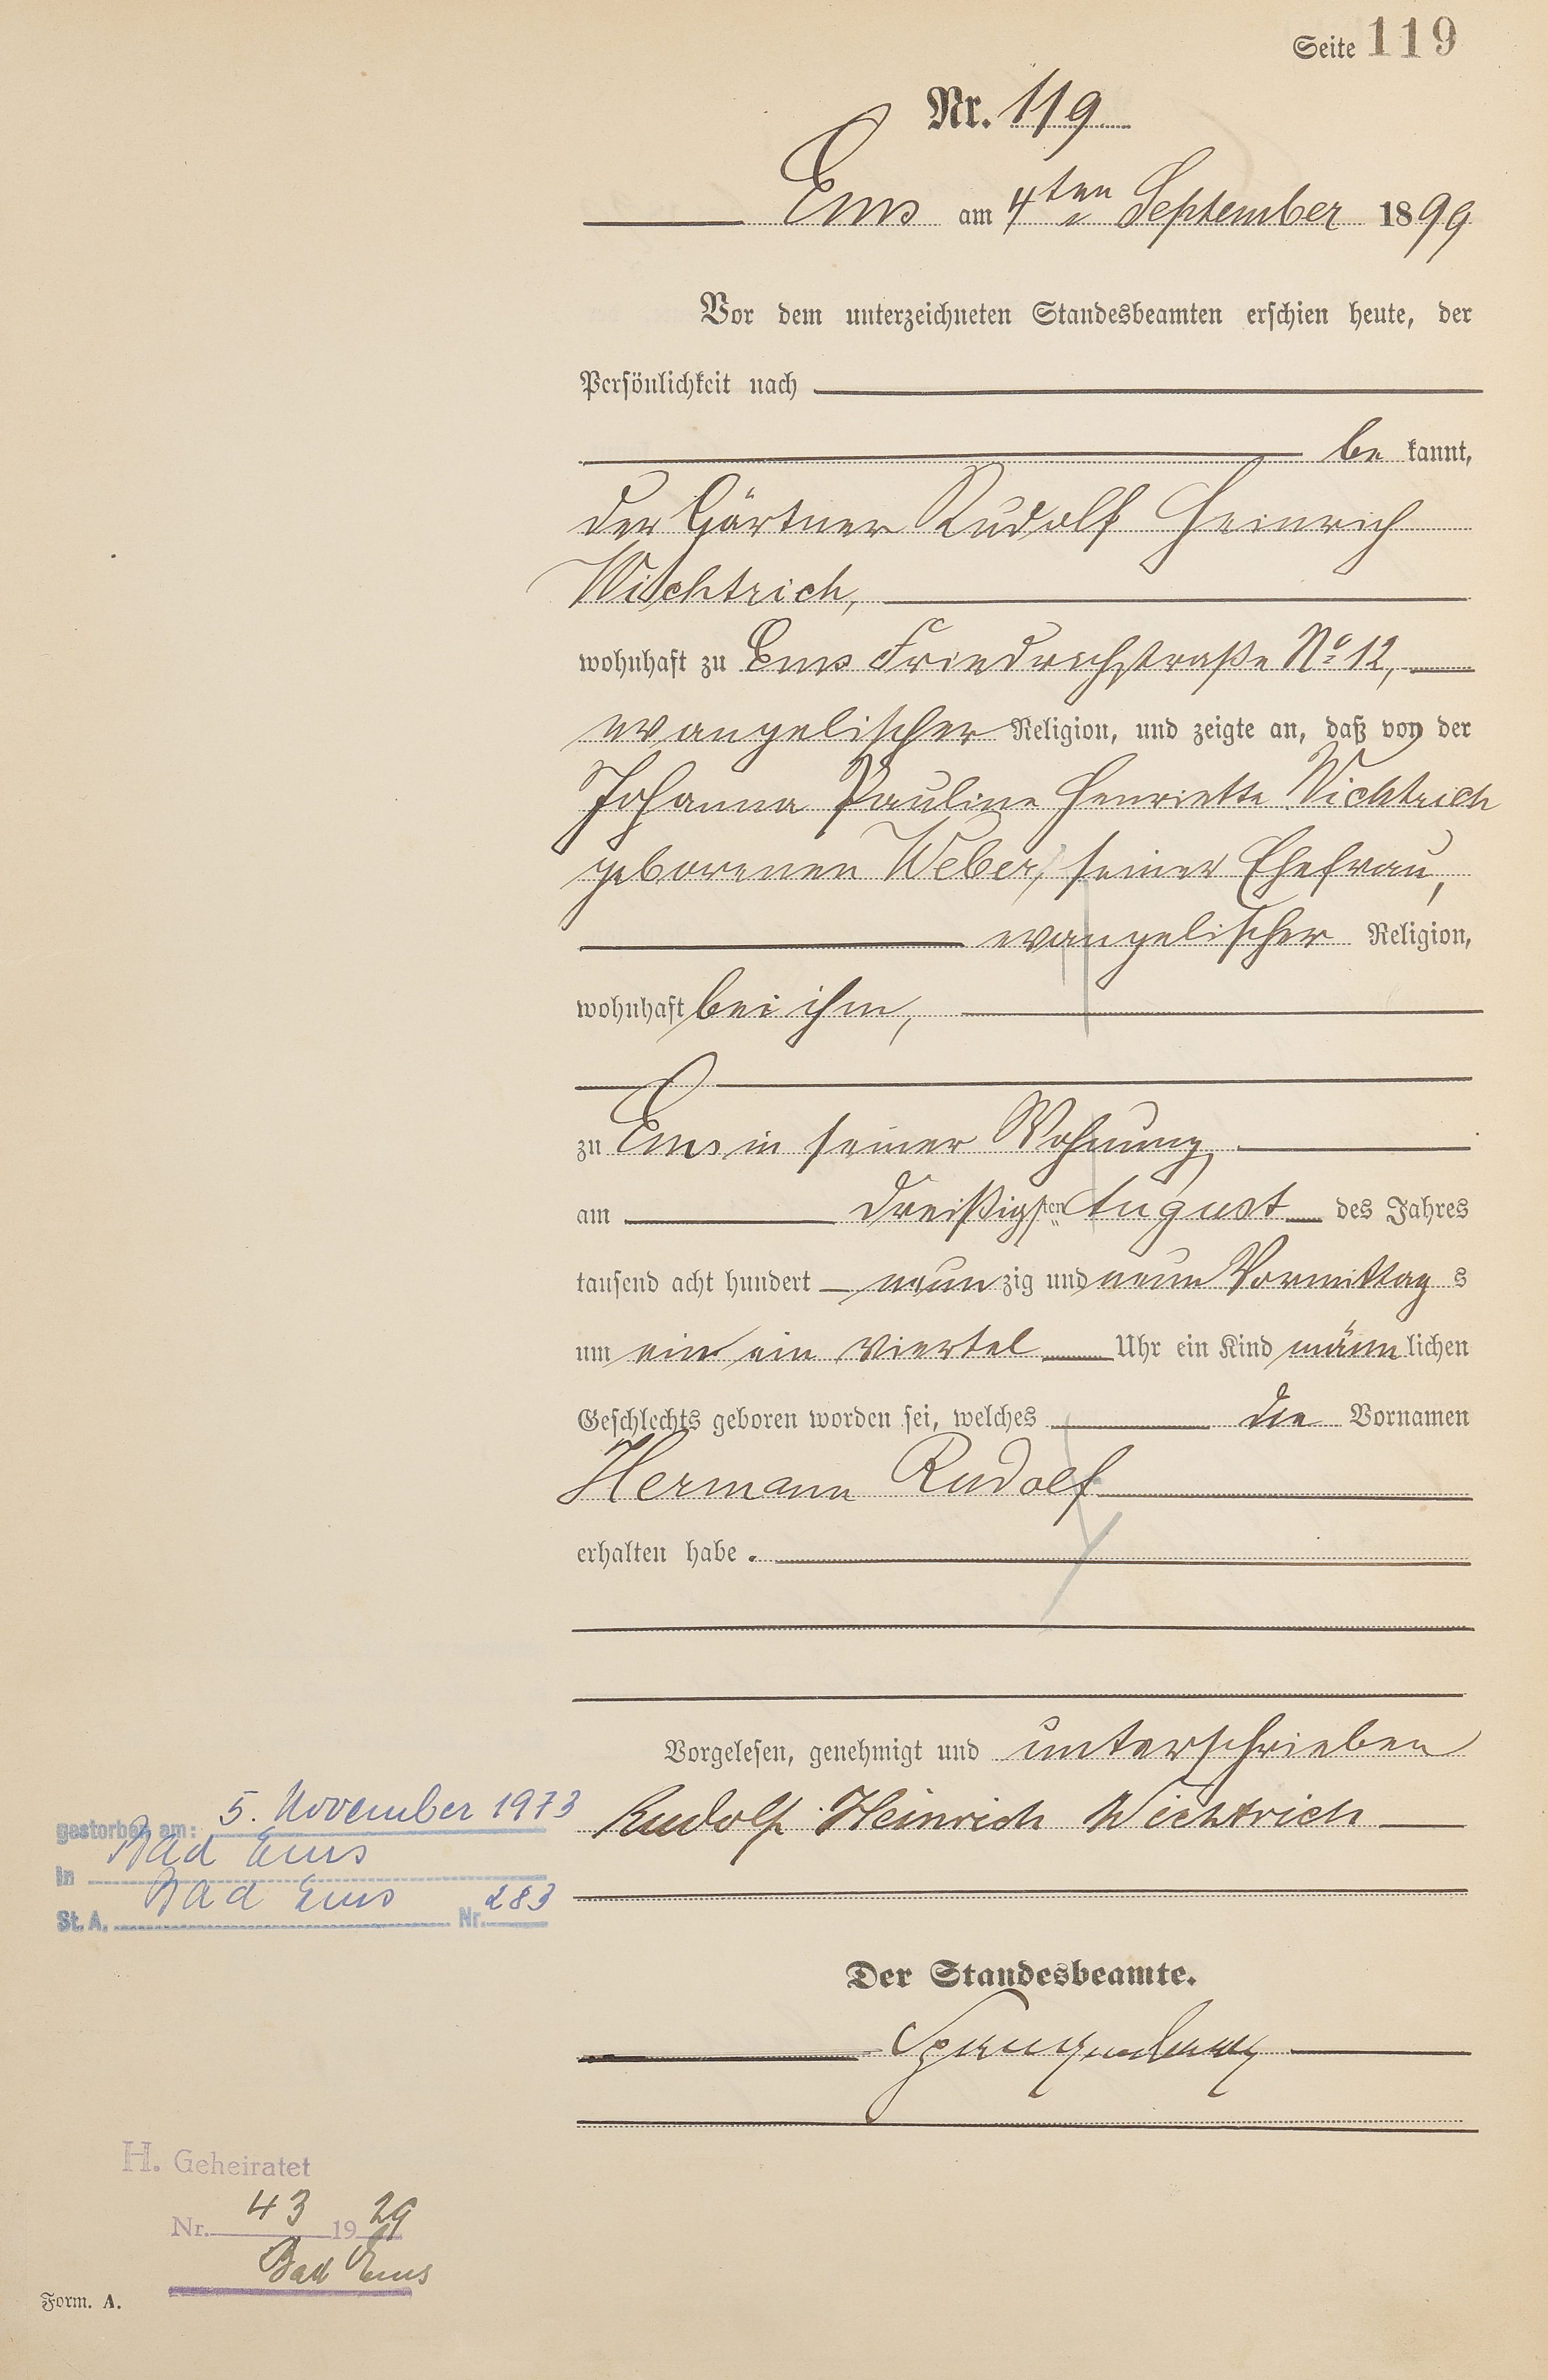 Seite 119
Nr. 119
Ems am 4ten September 1899
Vor dem unterzeichneten Standesbeamten erschien heute, der
Persönlichkeit nach
be kannt,
der Gärtner Rudolf Heinrich
Wichtrich,
wohnhaft zu Ems Friedrichstraße No 12,
evangelischer Religion, und zeigte an, daß von der
Johanna Pauline Henriette Wichtrich
geborenen Weber, seiner Ehefrau,
evangelischer Religion,
wohnhaft bei ihm,
zu Ems in seiner Wohnung,
am dreißigsten August des Jahres
tausend acht hundert neun zig und neun Vormittag s
um ein ein viertel Uhr ein Kind männ lichen
Geschlechts geboren worden sei, welches die Vornamen
Hermann Rudolf
erhalten habe.
Vorgelesen, genehmigt und unterschrieben
Rudolf Heinrich Wichtrich
Der Standesbeamte.
gestorben am: 5. November 1973
in Bad Ems
St. A. Bad Ems Nr. 283
H. Geheiratet
Nr. 43 1929
Bad Ems
Form. A.